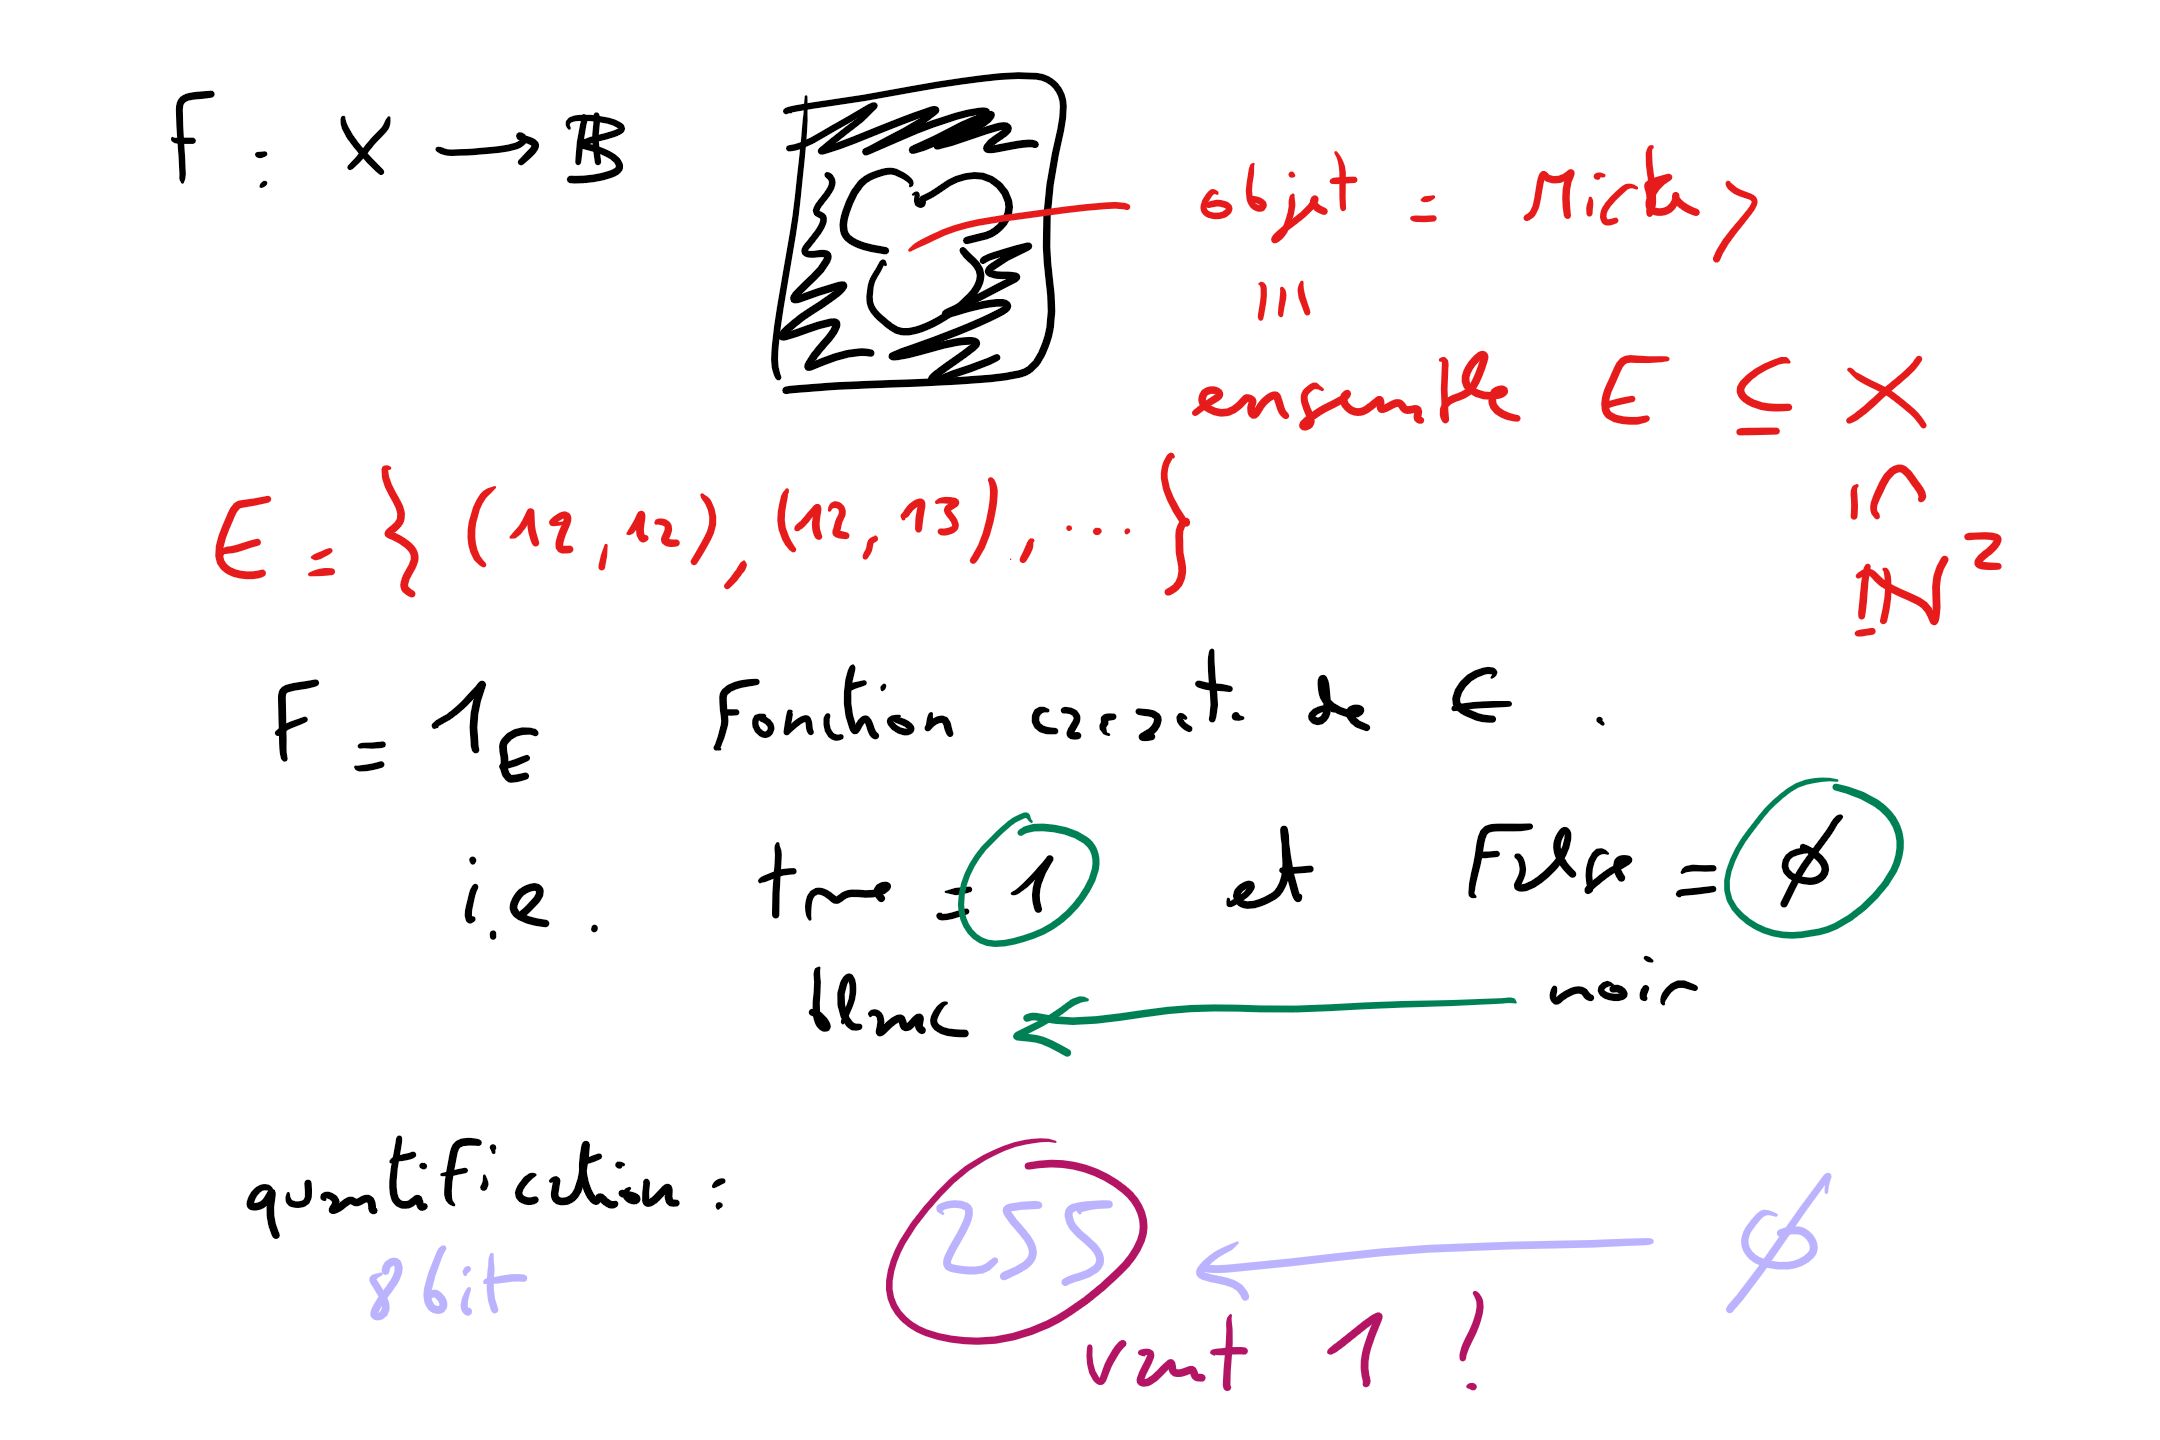 F : X → 𝔹
objet = Mickey
≡
ensemble E ⊆ X
⊆
ℕ²
E = { (12,12), (12,13), ... }
F = 1_E Fonction caract. de E .
i.e. true = 1 et False = 0
blanc ← noir
quantification : 255 ← 0
8bit
vaut 1 !